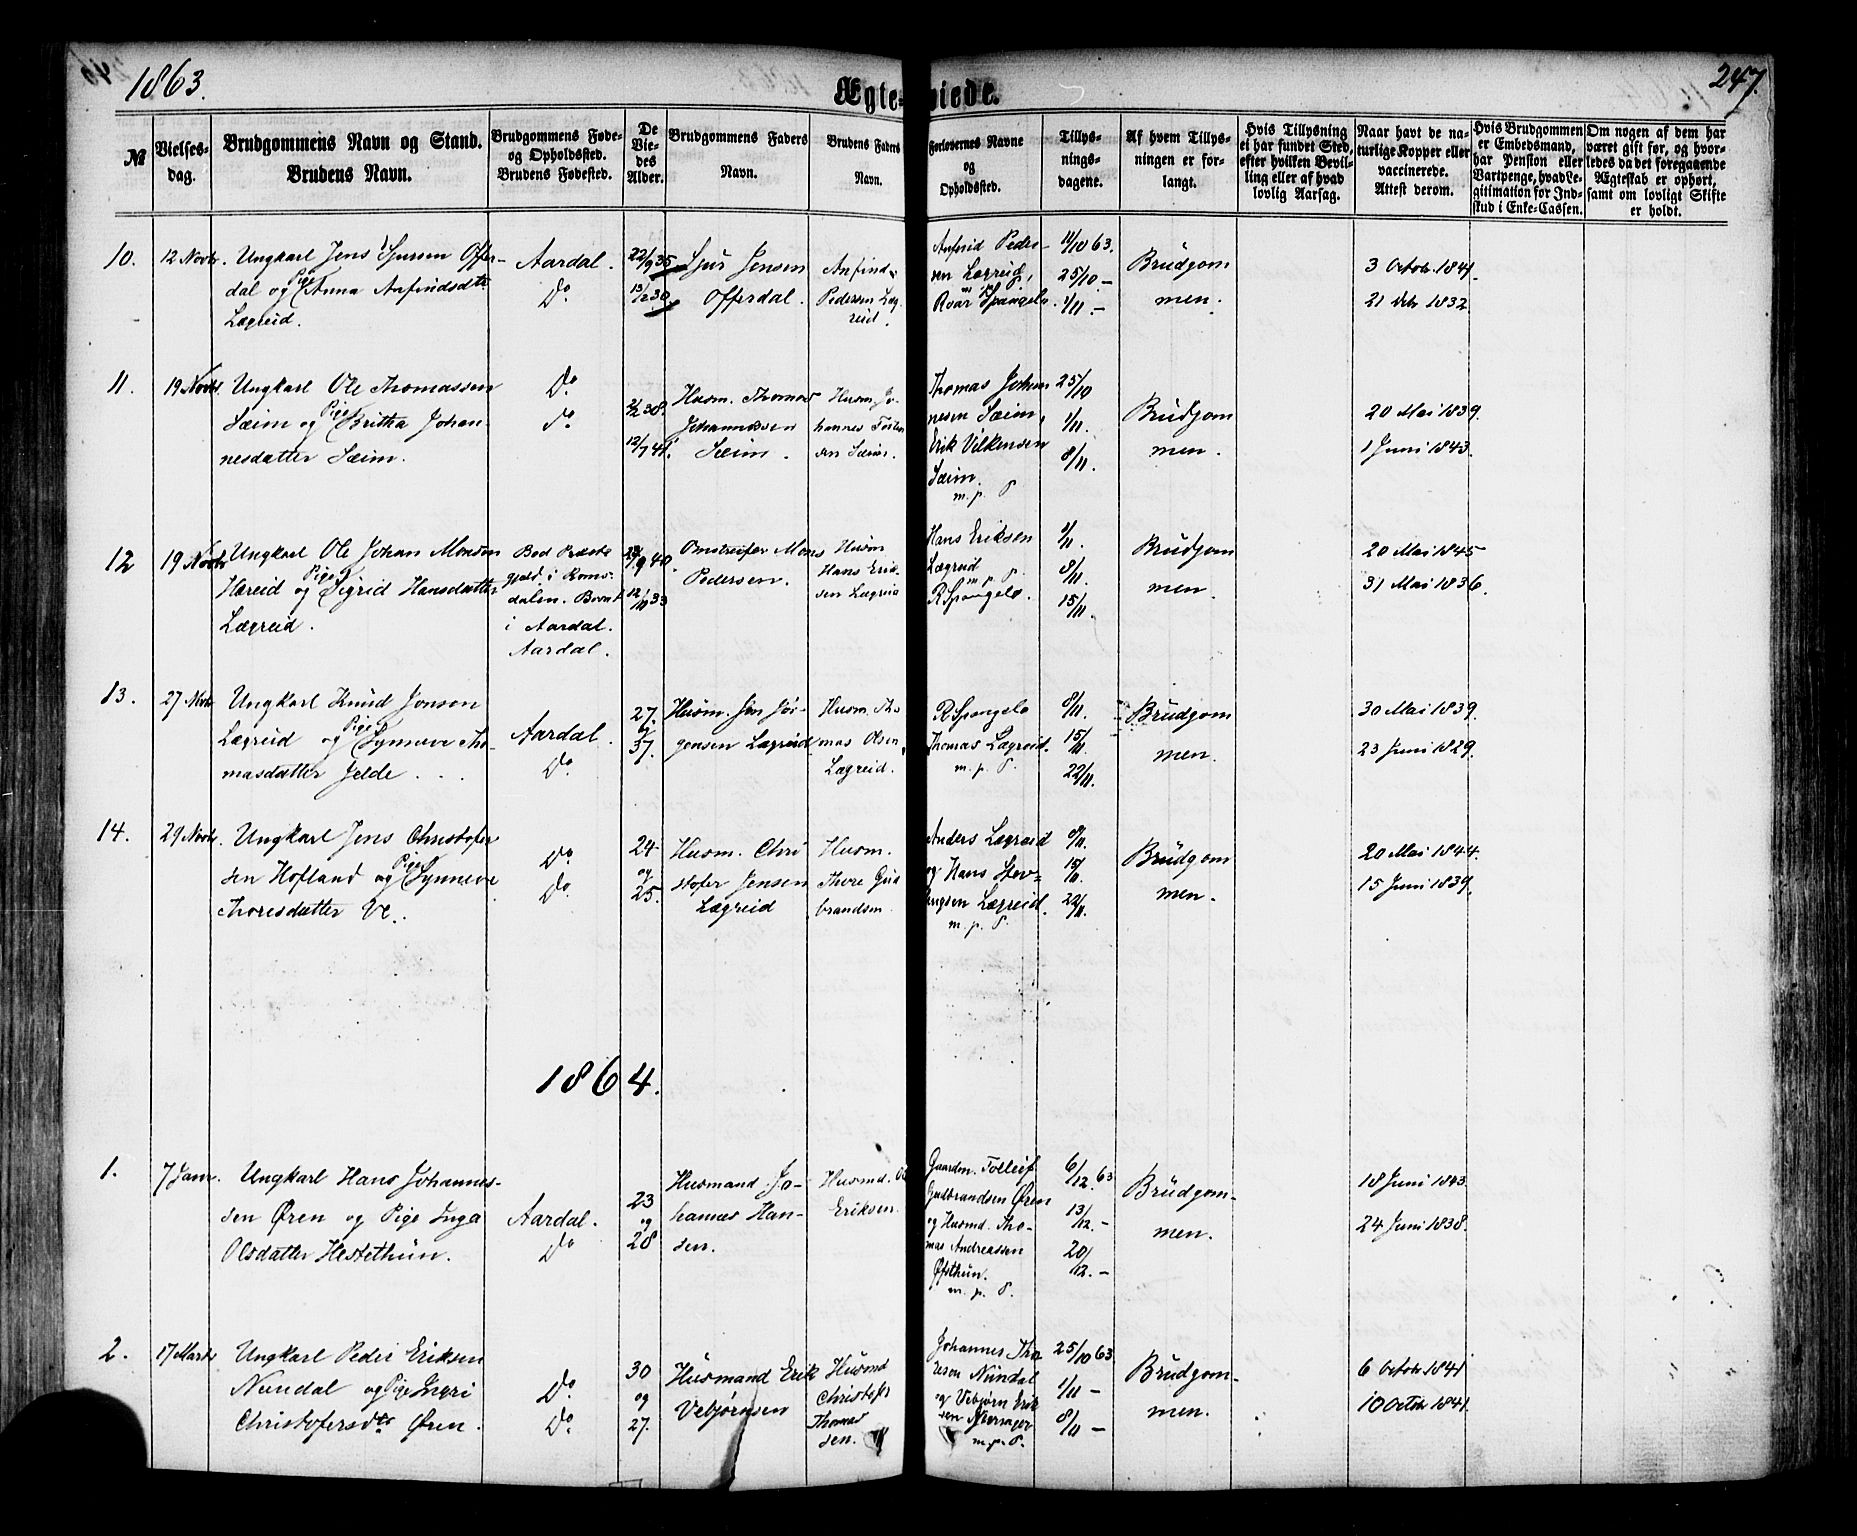 1863.
Ægte-
viede.
247.
№
Vielses-
dag.
Brudgommens Navn og Stand.
Brudens Navn.
Brudgommens Føde-
og Opholdssted.
Brudens Fødested.
De
Vie-
des
Alder.
Brudgommens Faders
Navn.
Brudens Faders
Navn.
Forlovernes Navne
og
Opholdssted.
Tillys-
nings-
dagene.
Af hvem Tillys-
ningen er for-
langt.
Hvis Tillysning
ei har fundet Sted,
efter hvilken Bevil-
ling eller af hvad
lovlig Aarsag.
Naar havt de na-
turlige Kopper eller
vaccinerede.
Attest derom.
Hvis Brudgommen
er Embedsmand,
har Pension eller
Vartpenge, hvad Le-
gitimation for Ind-
skud i Enke-Cassen.
Om nogen af dem har
været gift før, og hvor-
ledes da det foregaaende
Ægteskab er ophørt,
samt om lovligt Skifte
er holdt.
10.
12 Novbr.
Ungkarl Jens Sjursen Offer-
dal og Pige Anna Anfindsdtr
Lægreid.
Aardal.
Do
22/9 35
13/2 30
Sjur Jensen
Offerdal.
Anfind
Pedersen Læg-
reid.
Anfind Peder-
sen Lægreid,
m. p. P.
Roar Spangelo.
11/10 63.
25/10.-
1/11.-
Brudgom
men.
3 Octob. 1841
21 Debr 1832
11.
19 Novbr.
Ungkarl Ole Thomassen
Sæim og Pige Britha Johan-
nesdatter Sæim.
Do
do
2/2 38.
12/7 41.
Husm. Thomas
Johannessen
Sæim.
Husm. Jo-
hannes Tosten
sen Sæim.
Thomas Johan
nesen Sæim,
Erik Vilkensen
Sæim.
m. p. P.
25/10
1/11.
8/11.
Brudgom
men.
20 Mai 1839.
1 Juni 1843.
12
19 Novbr
Ungkarl Ole Johan Monsen
Hæreid og Pige Sigrid Hansdatter
Lægreid.
Bod Præste
gjeld i Roms-
dalen. Boent
i Aardal.
Aardal.
9 40.
12/10 33
Omstreifer Mons
Pedersen.
Husm
Hans Erik-
sen Lægreid
Hans Eriksen
Lægreid
m. p. P.
R Spangelo.
1/11.
8/11.
15/11.
Brudgom
men.
20 Mai 1845
31 Mai 1836.
13.
27 Novbr
Ungkarl Knud Jonsen
Lægreid og Pige Synneve Tho-
masdatter Jelde . . .
Aardal.
Do
27.
og
37.
Husm. Jon Jør-
gensen Lægreid
Husm. Tho
mas Olsen,
Lægreid.
R Spangelo
Thomas Lægreid.
m. p. P.
8/11.
15/11.
22/11.
Brudgom
men.
30 Mai 1839.
23 Juni 1829.
14.
29 Novbr.
Ungkarl Jens Christofer
sen Hofland og Pige Synneve
Thoresdatter Ve.
Do
Do
24
og
25.
Husm. Chri
stofer Jensen
Lægreid
Husm.
Thore Gud
brandsen
Anders Lægreid
og Hans Stev-
engsen Lægreid.
m. p. P.
8/11.
15/11.
22/11.
Brudgom
men.
20 Mai 1844.
15 Juni 1839.
1864.
1.
7 Janr.
Ungkarl Hans Johannes-
sen Øren og Pige Inga
Olsdatter Hestethun.
Aardal.
Do
23
og
28
Husmand Jo-
hannes Han-
sen.
Husmd. Ole
Eriksen.
Gaardm. Tolleif
Gudbrandsen Øren
og Husmd. Tho-
mas Andreassen
Øfsthun.
m. p. P.
6/12 63
13/12.-
20/12.-
Brudgom-
men.
18 Juni 1843.
24 Juni 1838.
2.
17 Marts
Ungkarl Peder Eriksen
Nundal og Pige Ingri
Christofersdtr Øren.
Do
Do
30
og
27.
Husmand Erik
Vebjørnsen
Husmd
Christofer
Thomas
sen.
Johannes Tho
Nundal
og Vebjørn Erik
sen
m. p. P.
25/10 63
1/11 -
8/11 -
Brudgom-
men.
6 Octobr 1841
10 Octbr 1841.